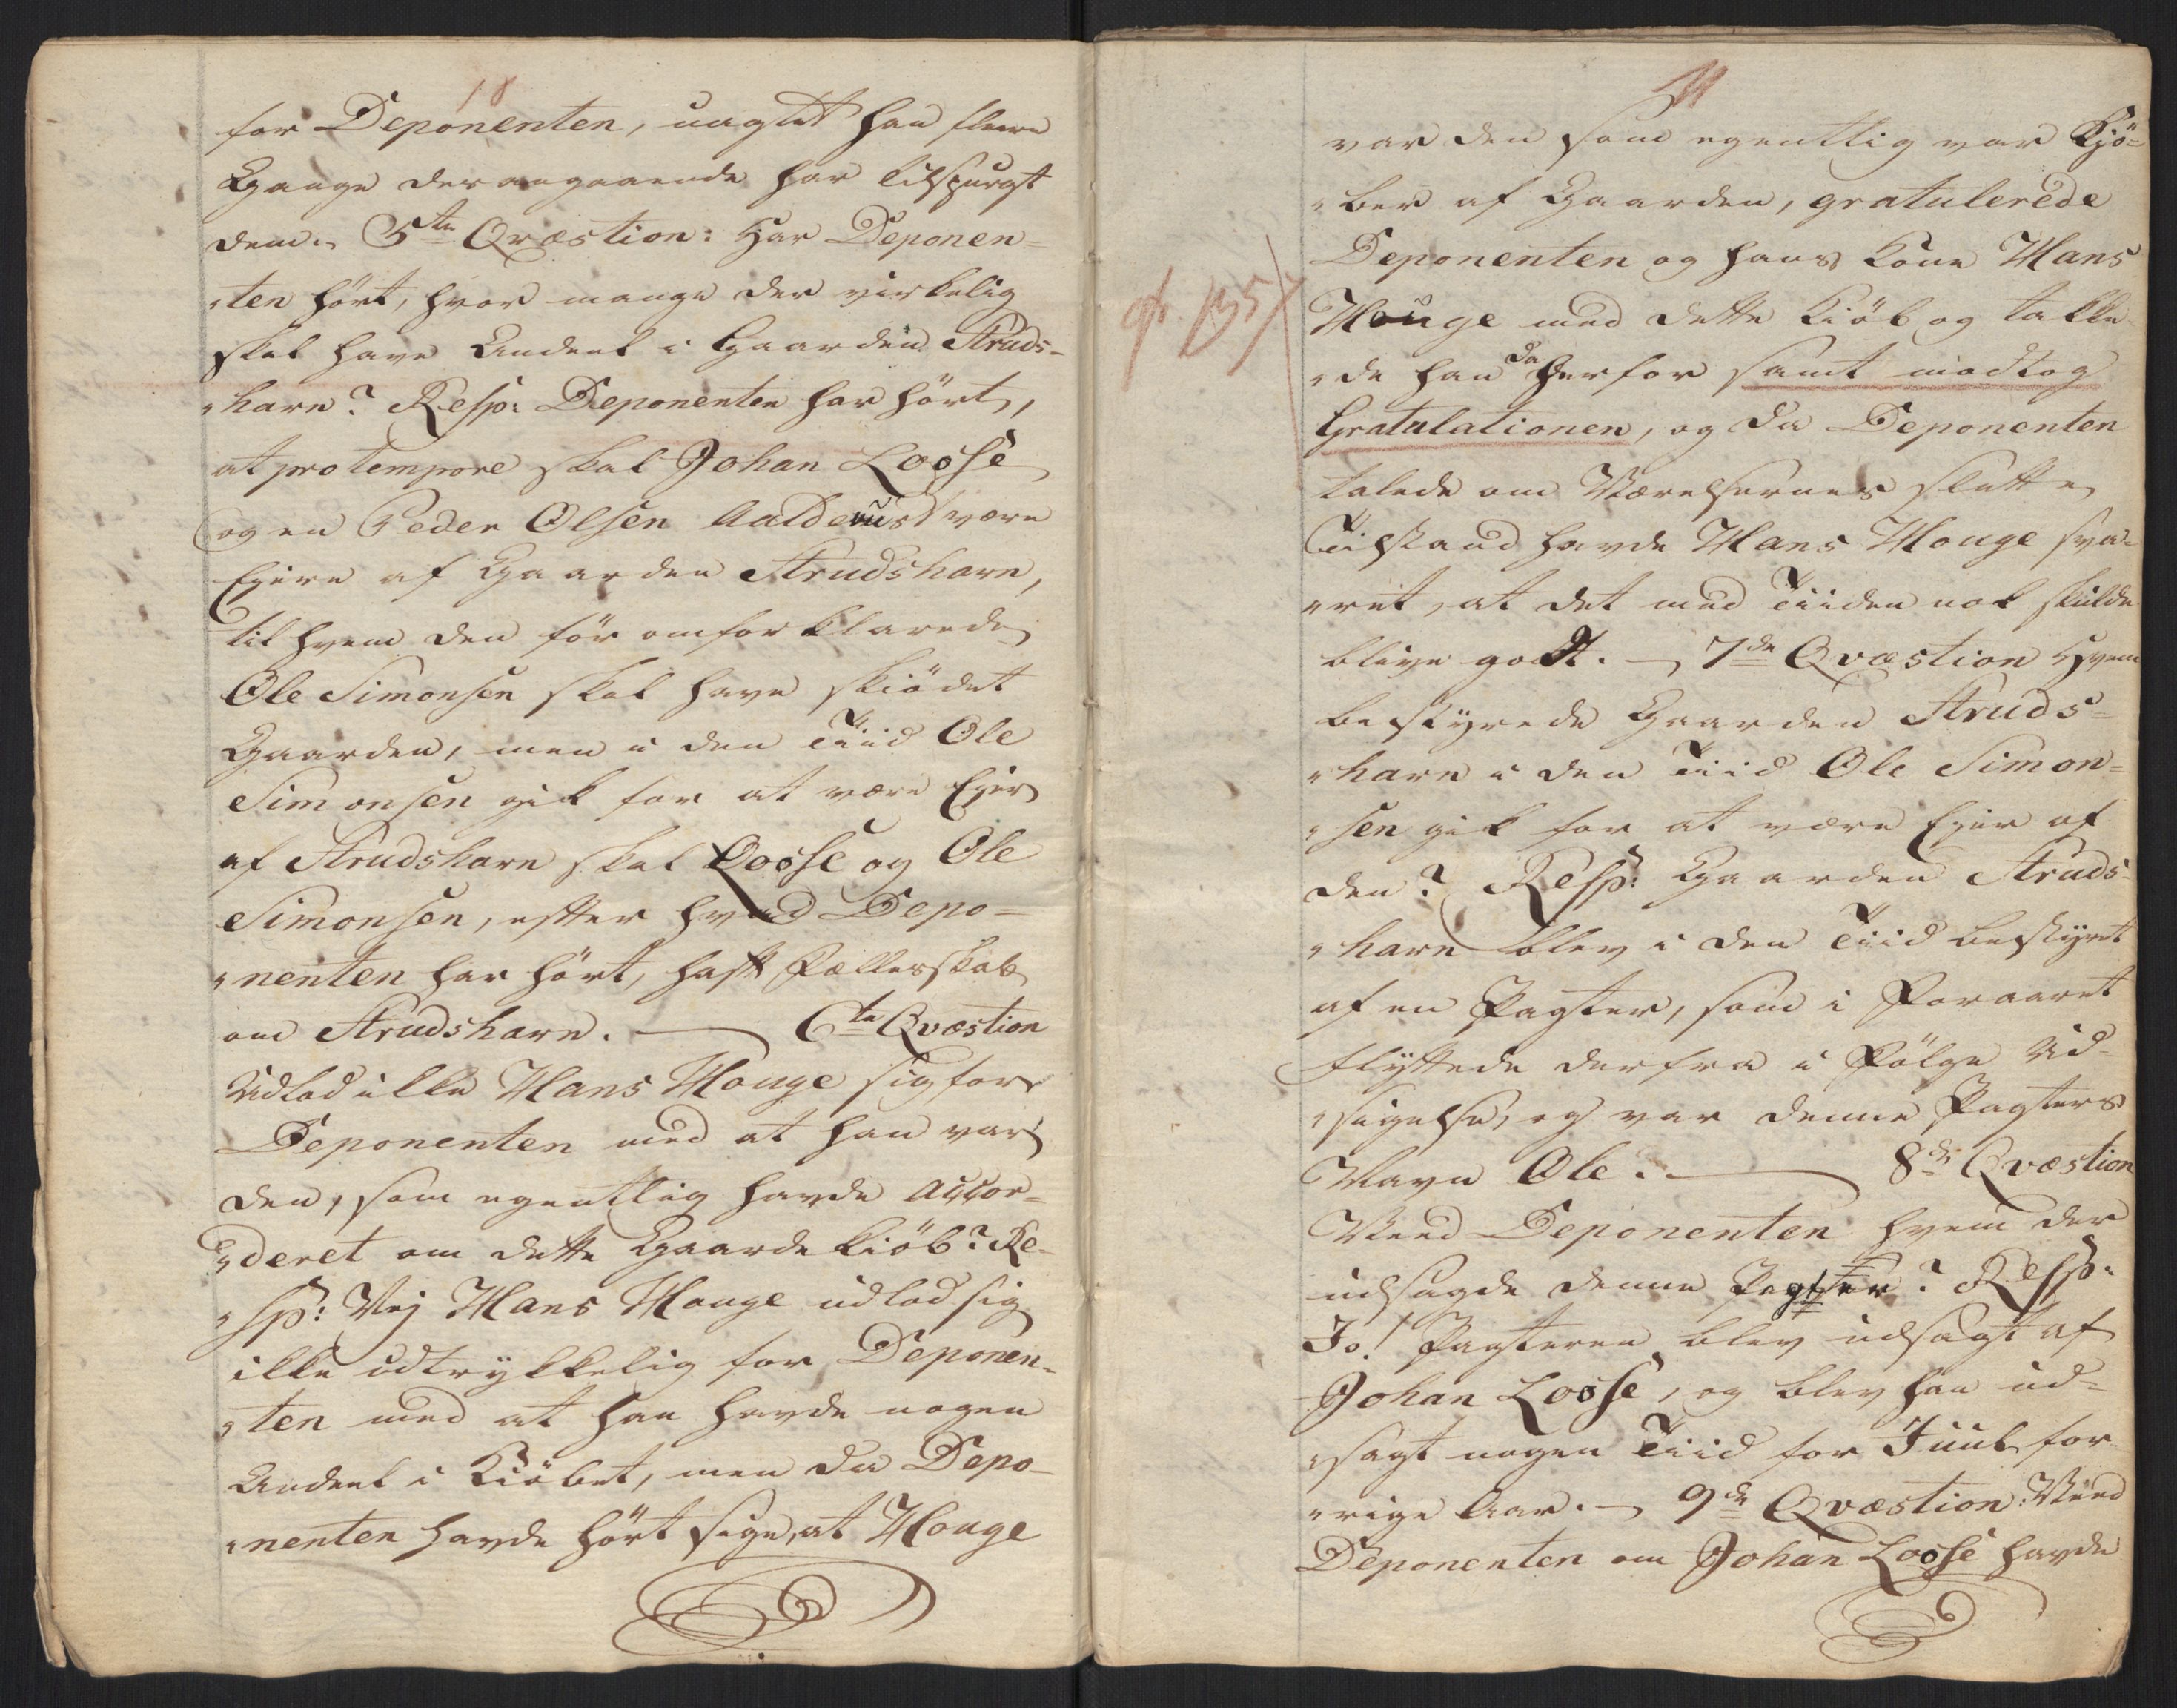 18
for Deponenten, uagtet han fleere
Gange derangaaende har tilspurgt
dem. 5te Qvæstion: Har Deponen=
„ten hört, hvor mange der virkelig
skal have Andeel i Gaarden Struds=
„harn? Resp: Deponenten har hört,
at pro tempore skal Johan Losse
og en Peder Olsen Aalderust være
Ejere af Gaarden Strudsharn,
til hvem den för omforklarede
Ole Simonsen skal have skiödet
Gaarden, men i den Tiid Ole
Simonsen gik for at være Ejer
af Strudsharn skal Losse og Ole
Simonsen, efter hvad Depo=
„nenten har hört, haft Fællesskab
om Strudsharn. — 6te Qvæstion
Udlod ikke Hans Houge sig for
Deponenten med at han var
den, som egentlig havde accor=
„deret om dette Gaarde Kiöb? Re=
„sp: Nej Hans Houge udlod sig
ikke udtrykkelig for Deponen=
„ten med at han havde nogen
Andeel i Kiöbet, men da Depo=
„nenten havde hört sige, at Houge
11
var den som egentlig var Kjö=
„ber af Gaarden, gratulerede
Deponenten og hans Kone Hans
Houge med dette Kiöb og takke=
„de han da herfor samt modtog
Gratulationen, og da Deponenten
talede om Værelsernes slette
Tilstand havde Hans Houge sva=
„ret, at det med Tiiden nok skulde
blive godt. — 7de Qvæstion Hvem
bestyrede Gaarden Struds=
„harn i den Tiid Ole Simon=
„sen gik for at være Ejer af
den? Resp: Gaarden Struds=
„harn blev i den Tiid bestyret
af en Pagter, som i Foraaret
flyttede derfra i Fölge Ud=
„sigelse, og var denne Pagters
Navn Ole. — 8de Qvæstion
Veed Deponenten hvem der
udsagde denne Pagter? Resp:
Jo! Pagteren blev udsagt af
Johan Losse, og blev han ud=
„sagt nogen Tiid for Juul for=
„rige Aar. — 9de Qvæstion: Veed
Deponenten om Johan Losse havde